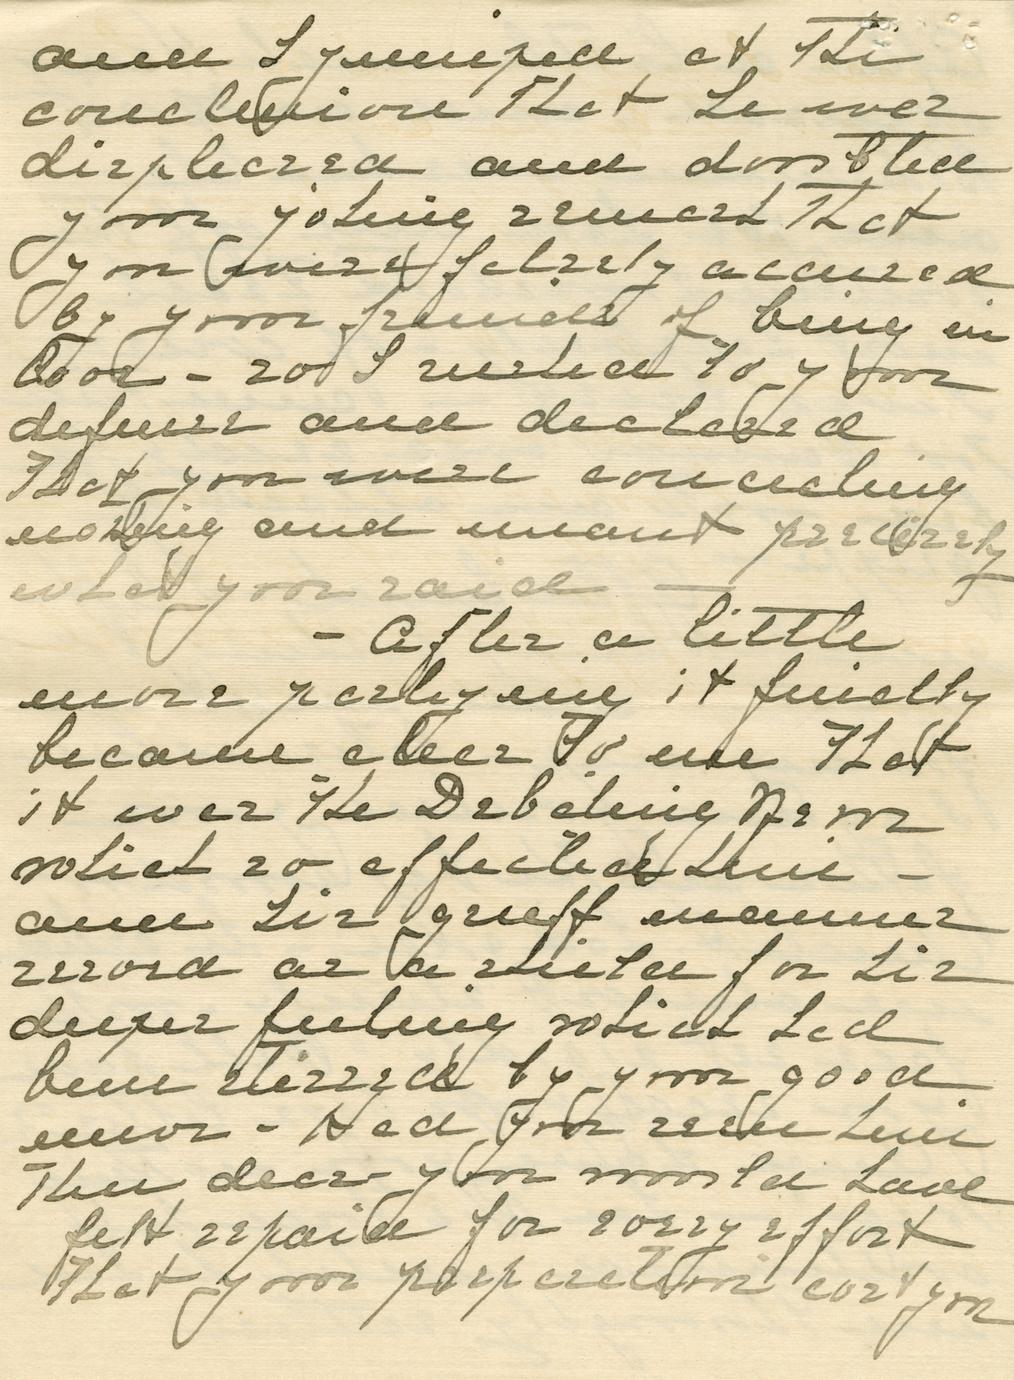 and I jumped at the
conclusion that he was
displeased and doubted
your joking remark that
you were falsely accused
by your friends of being in
love - so I rushed to your
defense and declared
that you were concealing
nothing and meant precisely
what you said —
- After a little
more parleying it finally
became clear to me that
it was the Debating News
which so affected him -
and his gruff manner
served as a shield for his
deeper feeling which had
been stirred by your good
news - Had you seen him
then dear you would have
felt repaid for every effort
that your preparation cost you